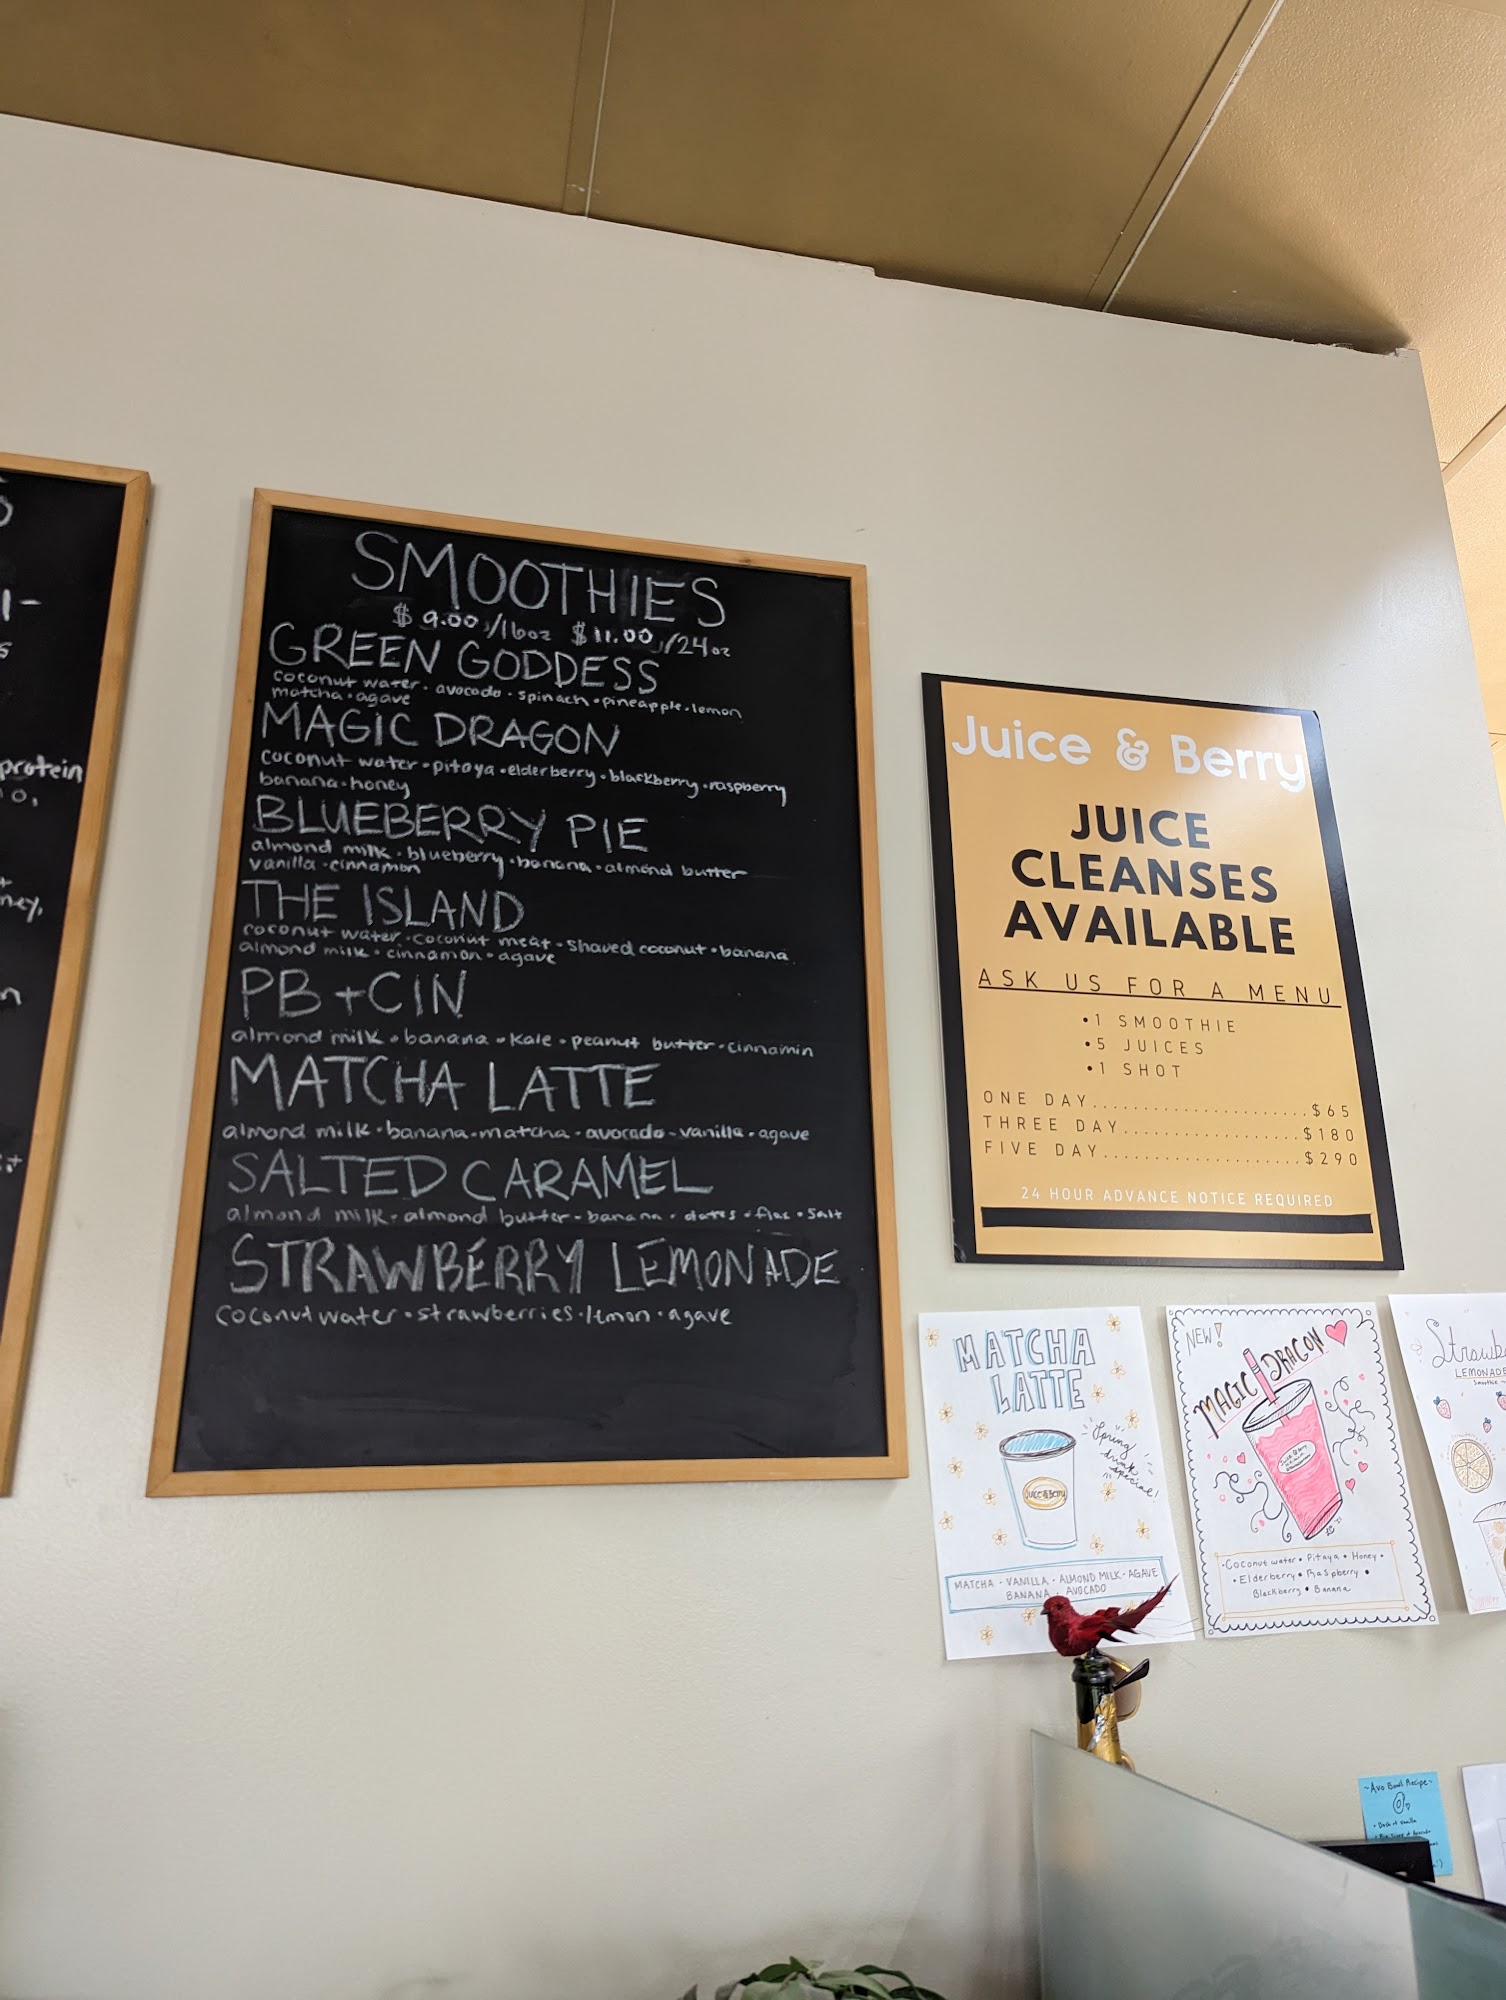 protein
SMOOTHIES
$ 9.00/16oz $11.00/24oz
GREEN GODDESS
coconut water · avocado · spinach · pineapple · lemon
matcha · agave
MAGIC DRAGON
coconut water · pitaya · elderberry · blackberry · raspberry
banana · honey
BLUEBERRY PIE
almond milk · blueberry · banana · almond butter
vanilla · cinnamon
THE ISLAND
coconut water · coconut meat · shaved coconut · banana
almond milk · cinnamon · agave
PB + CIN
almond milk · banana · kale · peanut butter · cinnamin
MATCHA LATTE
almond milk · banana · matcha · avocado · vanilla · agave
SALTED CARAMEL
almond milk · almond butter · banana · dates · flax · salt
STRAWBERRY LEMONADE
coconut water · strawberries · lemon · agave
Juice & Berry
JUICE
CLEANSES
AVAILABLE
ASK US FOR A MENU
•1 SMOOTHIE
•5 JUICES
•1 SHOT
ONE DAY......................$65
THREE DAY..................$180
FIVE DAY....................$290
24 HOUR ADVANCE NOTICE REQUIRED
MATCHA
LATTE
Spring
drink
special!
Juice & Berry
MATCHA - VANILLA - ALMOND MILK - AGAVE
BANANA - AVOCADO
NEW!
MAGIC DRAGON
Juice & Berry
• Coconut water • Pitaya • Honey •
• Elderberry • Raspberry •
Blackberry • Banana
LEMONADE
Smoothie
~Avo Bowl Recipe~
• Dash of vanilla